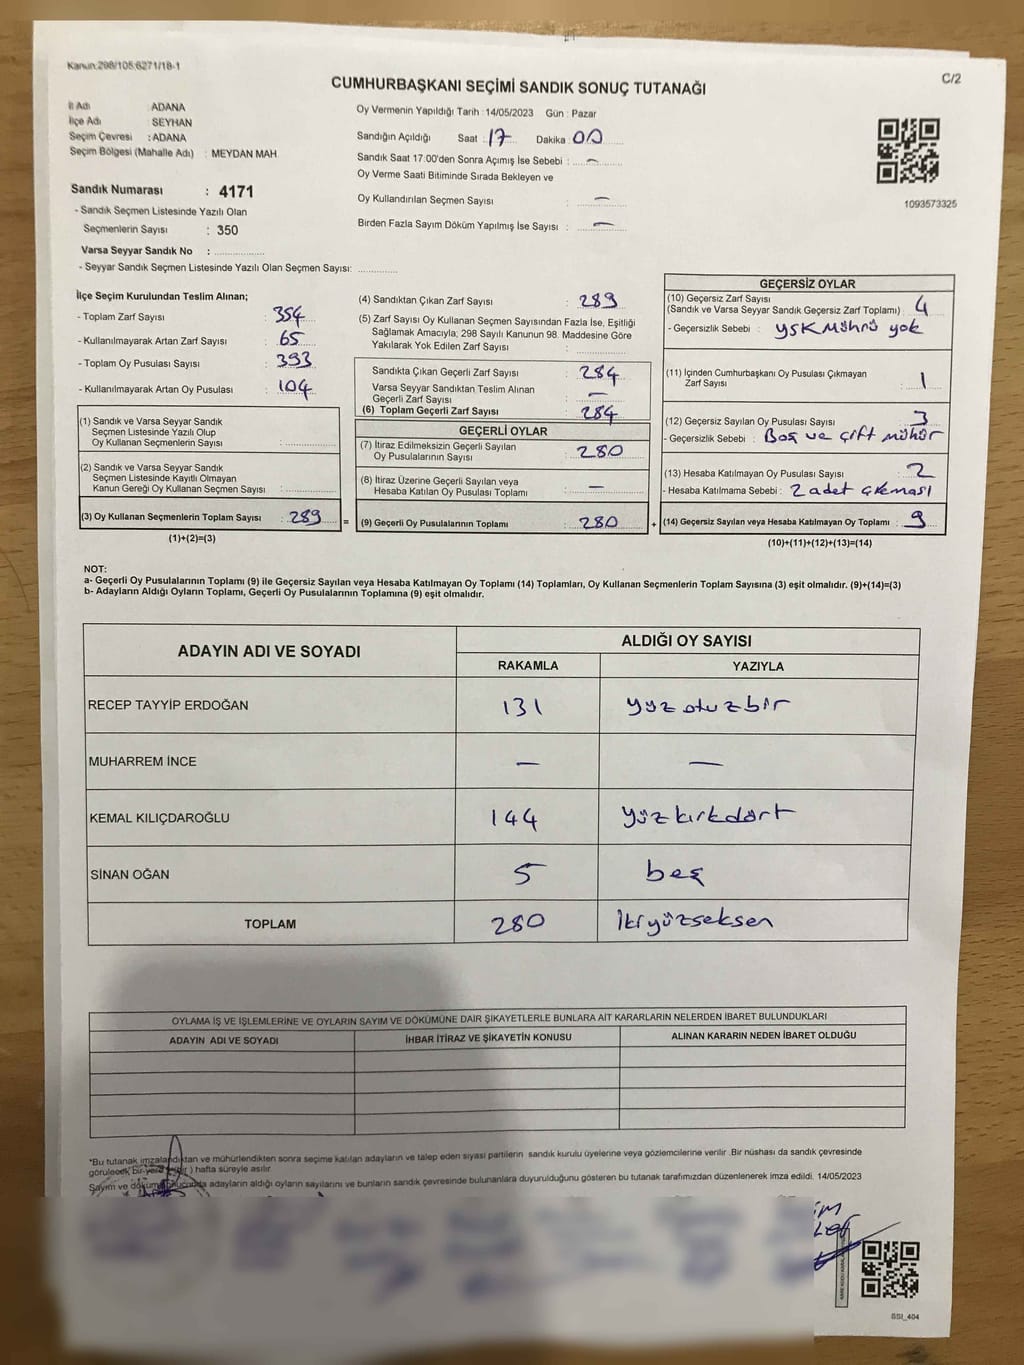 Kanun:298/105,6271/18-1
C/2
CUMHURBAŞKANI SEÇİMİ SANDIK SONUÇ TUTANAĞI
İl Adı ADANA
İlçe Adı : SEYHAN
Seçim Çevresi : ADANA
Seçim Bölgesi (Mahalle Adı) : MEYDAN MAH
Sandık Numarası : 4171
- Sandık Seçmen Listesinde Yazılı Olan
Seçmenlerin Sayısı : 350
Varsa Seyyar Sandık No :
- Seyyar Sandık Seçmen Listesinde Yazılı Olan Seçmen Sayısı:
Oy Vermenin Yapıldığı Tarih :14/05/2023 Gün : Pazar
Sandığın Açıldığı Saat : 17 Dakika : 00
Sandık Saat 17.00'den Sonra Açımış İse Sebebi : —
Oy Verme Saati Bitiminde Sırada Bekleyen ve
Oy Kullandırılan Seçmen Sayısı : —
Birden Fazla Sayım Döküm Yapılmış İse Sayısı : —
1093573325
İlçe Seçim Kurulundan Teslim Alınan;
- Toplam Zarf Sayısı : 354
- Kullanılmayarak Artan Zarf Sayısı : 65
- Toplam Oy Pusulası Sayısı : 393
- Kullanılmayarak Artan Oy Pusulası : 104
(1) Sandık ve Varsa Seyyar Sandık
Seçmen Listesinde Yazılı Olup
Oy Kullanan Seçmenlerin Sayısı :
(2) Sandık ve Varsa Seyyar Sandık
Seçmen Listesinde Kayıtlı Olmayan
Kanun Gereği Oy Kullanan Seçmen Sayısı :
(3) Oy Kullanan Seçmenlerin Toplam Sayısı : 289 =
(1)+(2)=(3)
(4) Sandıktan Çıkan Zarf Sayısı : 289
(5) Zarf Sayısı Oy Kullanan Seçmen Sayısından Fazla İse, Eşitliği
Sağlamak Amacıyla; 298 Sayılı Kanunun 98. Maddesine Göre
Yakılarak Yok Edilen Zarf Sayısı :
Sandıkta Çıkan Geçerli Zarf Sayısı : 284
Varsa Seyyar Sandıktan Teslim Alınan
Geçerli Zarf Sayısı : —
(6) Toplam Geçerli Zarf Sayısı : 284
GEÇERLİ OYLAR
(7) İtiraz Edilmeksizin Geçerli Sayılan
Oy Pusulalarının Sayısı : 280
(8) İtiraz Üzerine Geçerli Sayılan veya
Hesaba Katılan Oy Pusulası Toplamı : —
(9) Geçerli Oy Pusulalarının Toplamı : 280 +
GEÇERSİZ OYLAR
(10) Geçersiz Zarf Sayısı
(Sandık ve Varsa Seyyar Sandık Geçersiz Zarf Toplamı) : 4
- Geçersizlik Sebebi : YSK Mührü yok
(11) İçinden Cumhurbaşkanı Oy Pusulası Çıkmayan
Zarf Sayısı : 1
(12) Geçersiz Sayılan Oy Pusulası Sayısı : 3
- Geçersizlik Sebebi : Boş ve çift mühür
(13) Hesaba Katılmayan Oy Pusulası Sayısı : 2
- Hesaba Katılmama Sebebi : 2 adet çıkması
(14) Geçersiz Sayılan veya Hesaba Katılmayan Oy Toplamı : 9
(10)+(11)+(12)+(13)=(14)
NOT:
a- Geçerli Oy Pusulalarının Toplamı (9) ile Geçersiz Sayılan veya Hesaba Katılmayan Oy Toplamı (14) Toplamları, Oy Kullanan Seçmenlerin Toplam Sayısına (3) eşit olmalıdır. (9)+(14)=(3)
b- Adayların Aldığı Oyların Toplamı, Geçerli Oy Pusulalarının Toplamına (9) eşit olmalıdır.
ADAYIN ADI VE SOYADI ALDIĞI OY SAYISI
RAKAMLA YAZIYLA
RECEP TAYYİP ERDOĞAN 131 yüz otuz bir
MUHARREM İNCE — —
KEMAL KILIÇDAROĞLU 144 yüzkırkdört
SİNAN OĞAN 5 beş
TOPLAM 280 ikiyüzseksen
OYLAMA İŞ VE İŞLEMLERİNE VE OYLARIN SAYIM VE DÖKÜMÜNE DAİR ŞİKAYETLERLE BUNLARA AİT KARARLARIN NELERDEN İBARET BULUNDUKLARI
ADAYIN ADI VE SOYADI İHBAR İTİRAZ VE ŞİKAYETİN KONUSU ALINAN KARARIN NEDEN İBARET OLDUĞU
*Bu tutanak imzalandıktan ve mühürlendikten sonra seçime katılan adayların ve talep eden siyasi partilerin sandık kurulu üyelerine veya gözlemcilerine verilir .Bir nüshası da sandık çevresinde
görülecek bir yere ) hafta süreyle asılır.
Sayım ve döküm sonucunda adayların aldığı oyların sayılarını ve bunların sandık çevresinde bulunanlara duyurulduğunu gösteren bu tutanak tarafımızdan düzenlenerek imza edildi. 14/05/2023
SSI_404